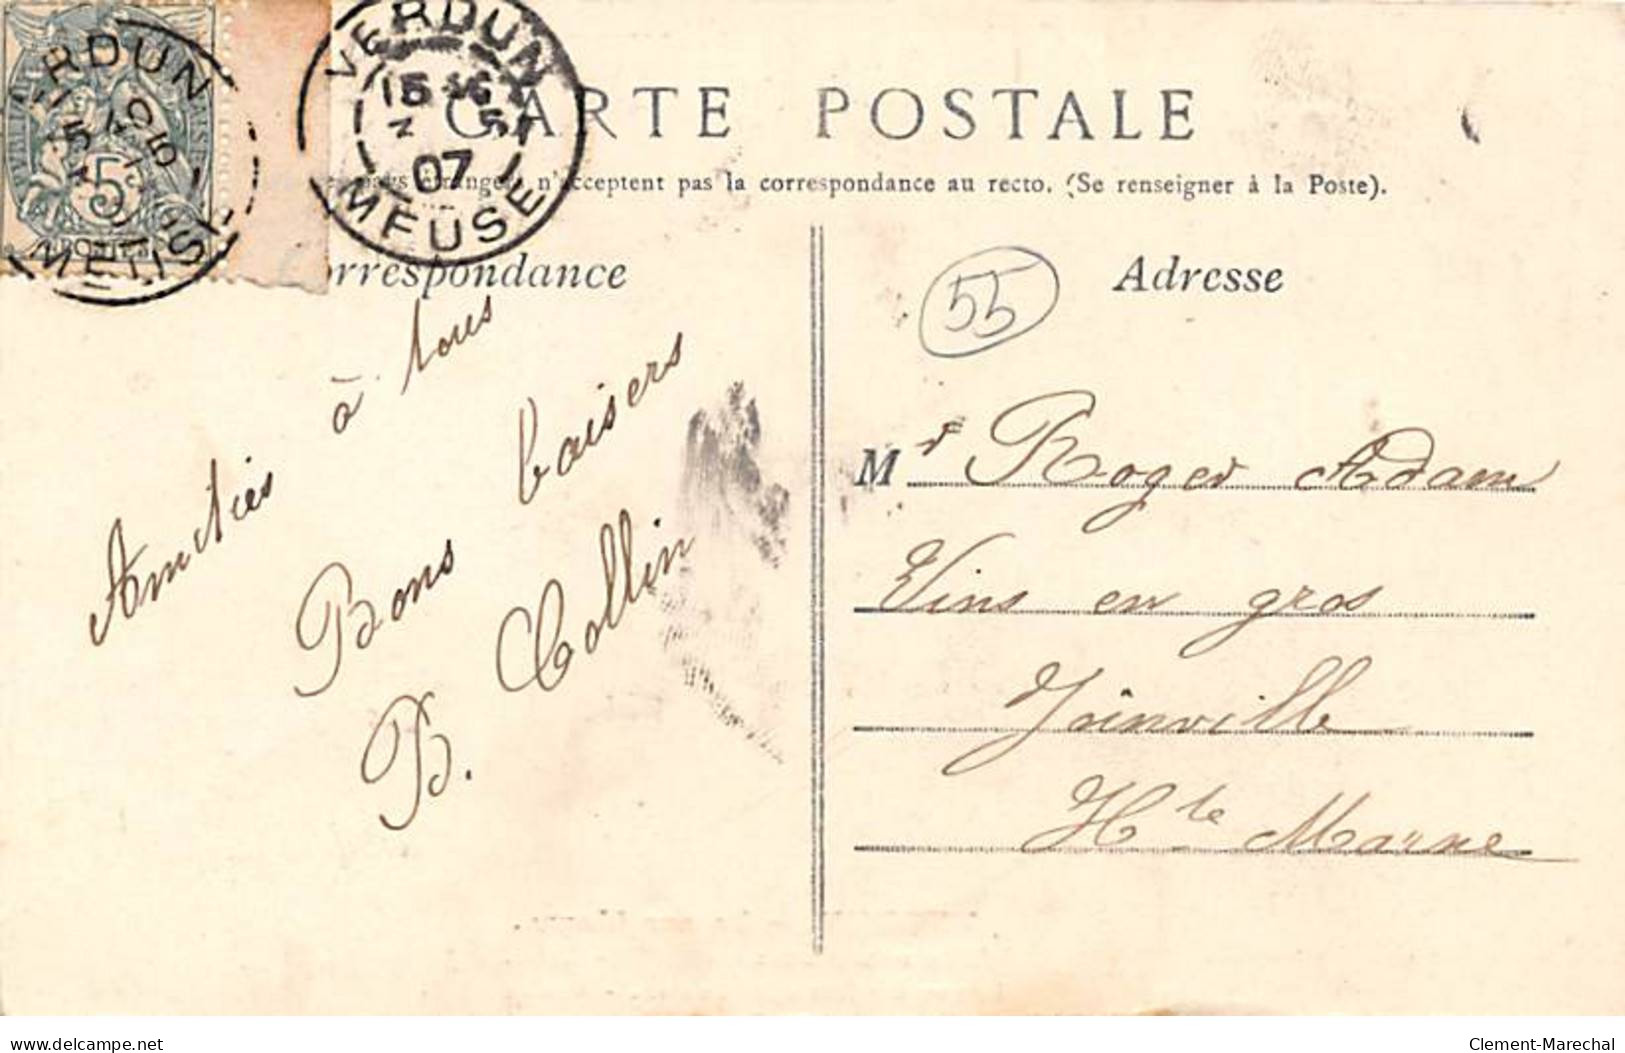 VERDUN
15
07
MEUSE
5
POSTES
CARTE POSTALE
n'acceptent pas la correspondance au recto. (Se renseigner à la Poste).
Correspondance
Amitiés à tous
Bons baisers
B. Collin
55
Adresse
Mr Roger Adam
Vins en gros
Joinville
Hte Marne
delcampe.net
Clement-Marechal